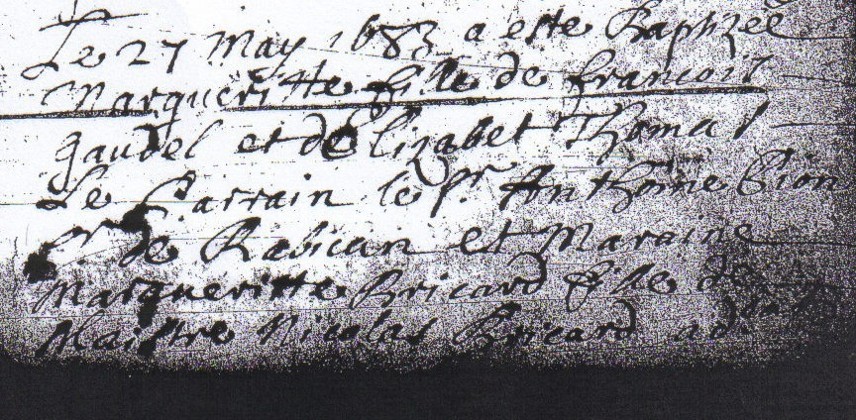 Le 27 May 1683 a este Baptizée
Margueritte fille de francois
gaudel et de Elizabet Thomas
Le Parrain le Sr Anthoine Gion
Sr de Rabican et Maraine
Margueritte Bricard fille de
Maistre Nicolas Bricard